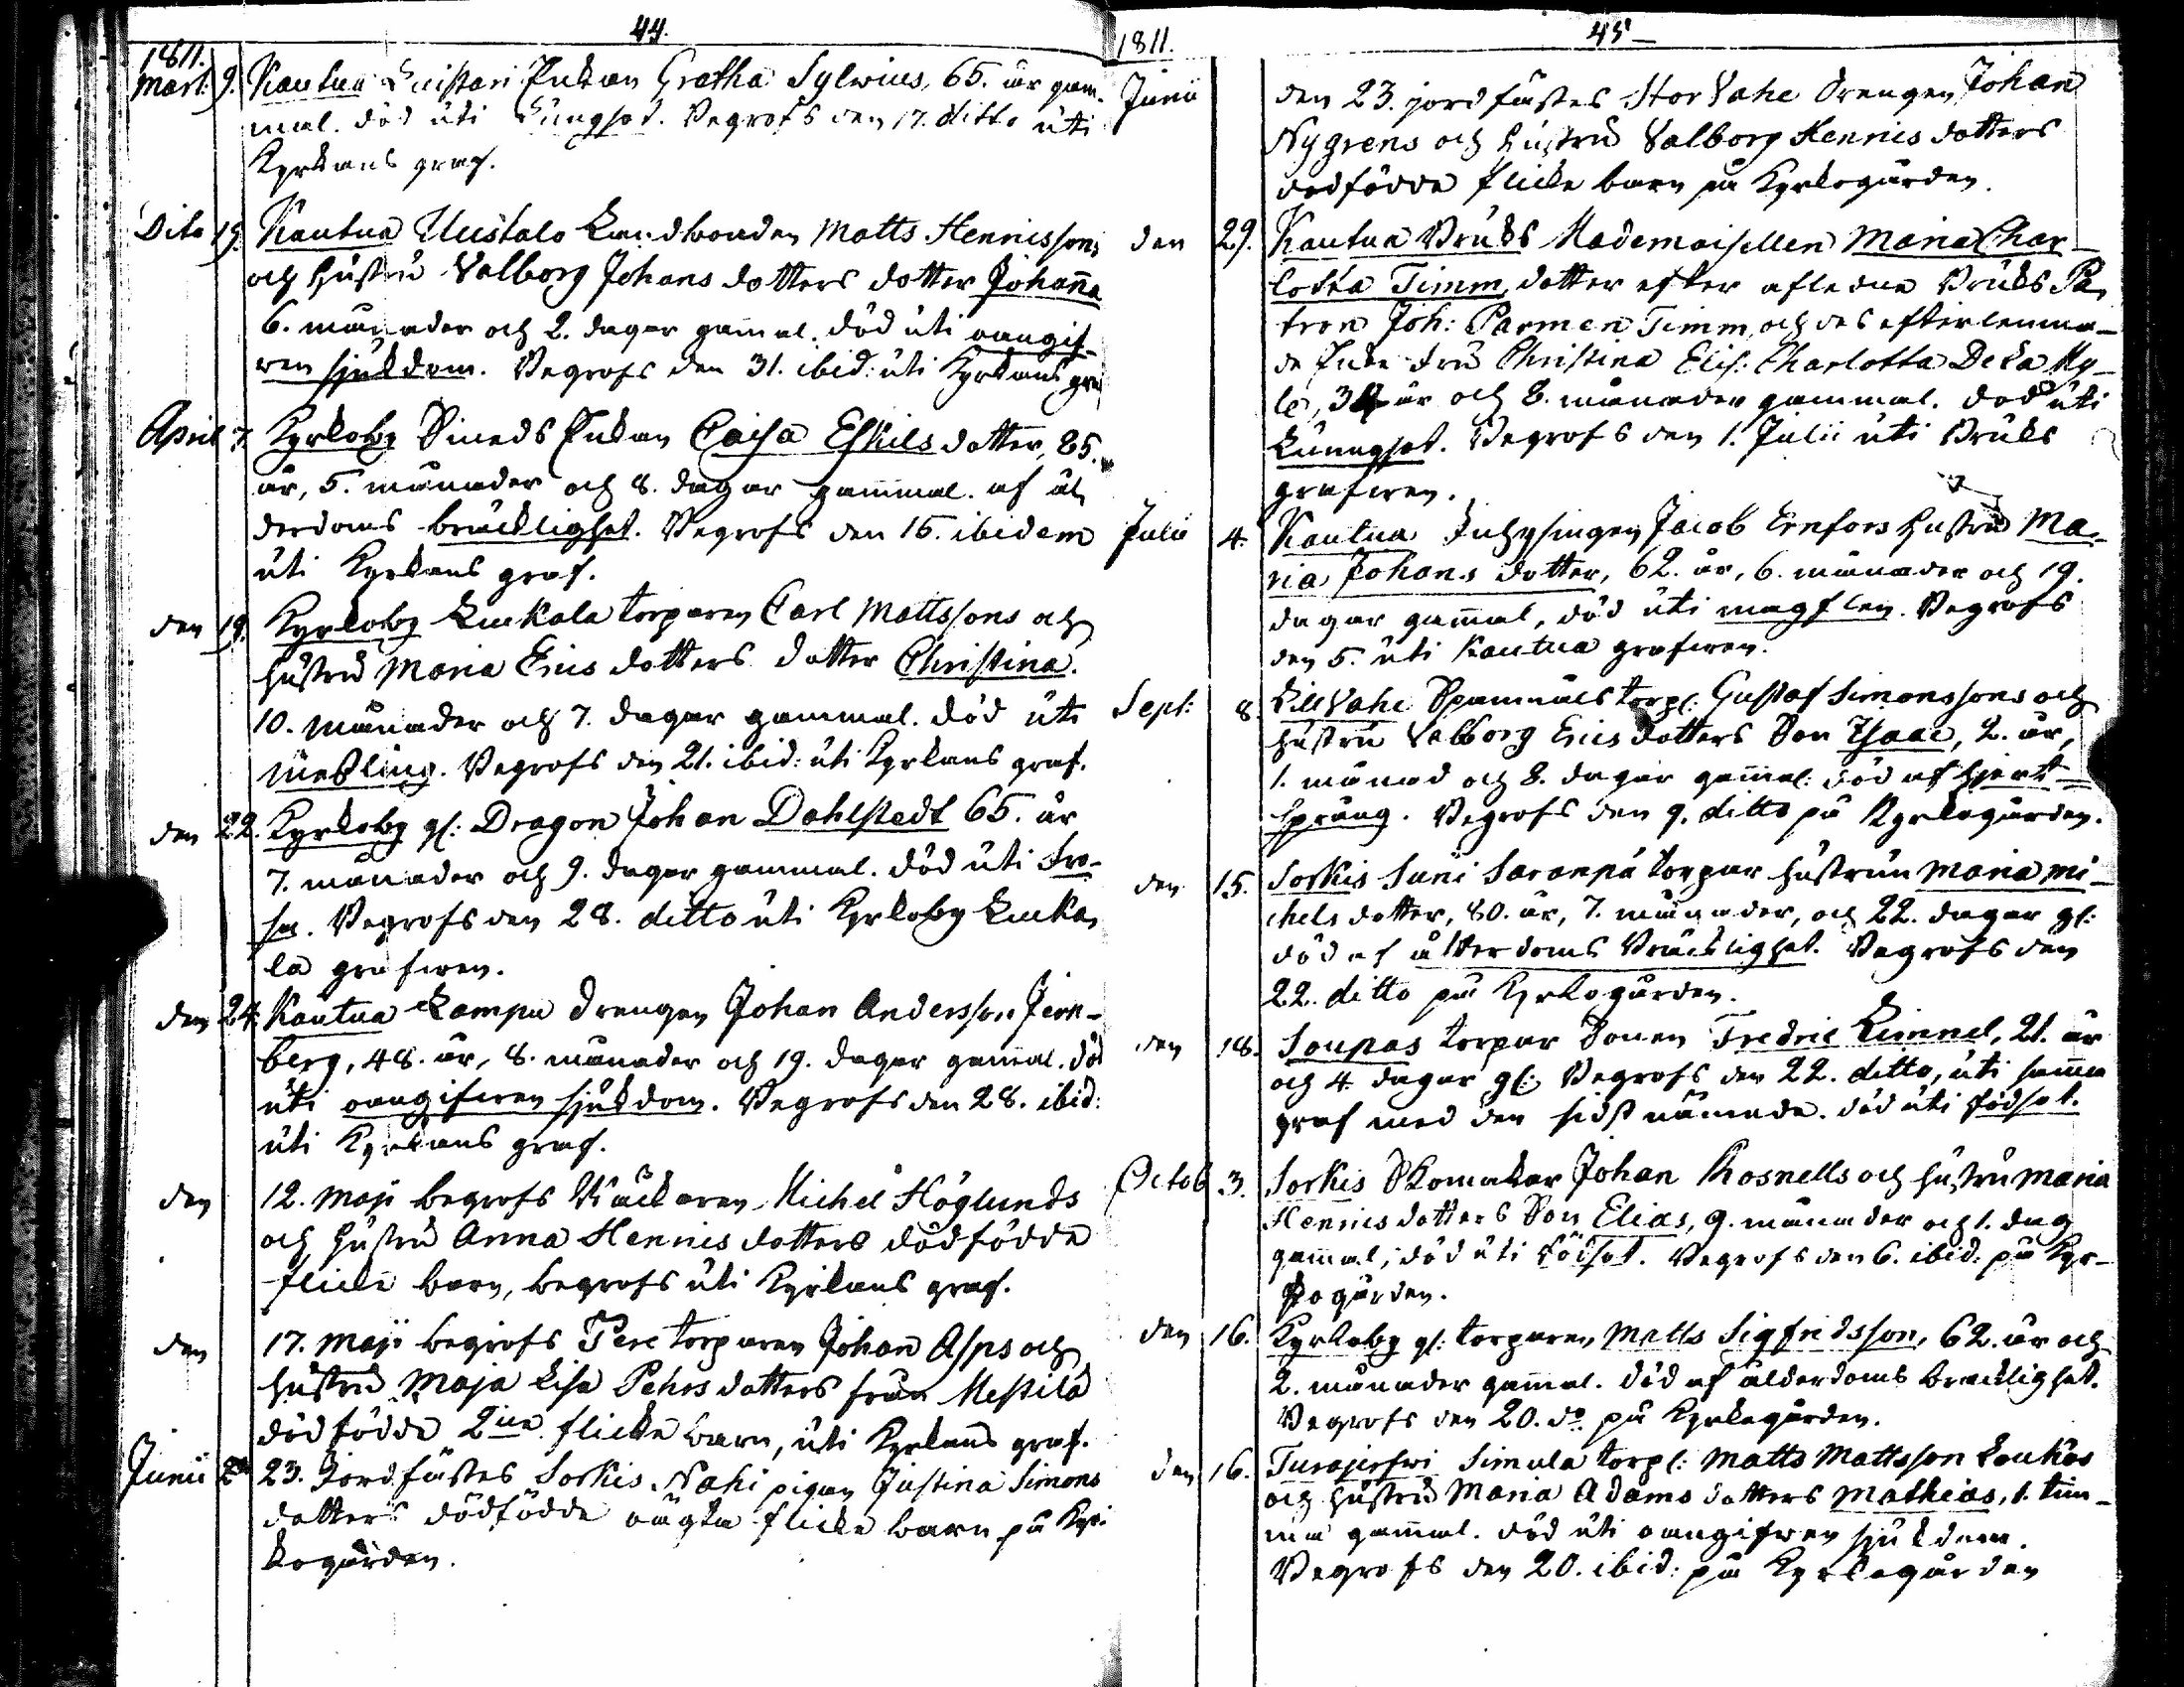 44.
1811.
Mart: 9. Kautua Enistari Enkan Gretha Sylvius, 65. år gam-
mal. död uti Lungsot. Begrofs den 17. ditto uti
Kyrkans graf.
Dito 19. Kautua Uustalo Landbonden Matts Hennissons
och hustru Valborg Johans dotters dotter Johanna
6. månader och 2. dagar gamal. död uti oangif-
ven sjukdom. Begrofs den 31. ibid: uti Kyrkans graf
April 7. Kyrkoby Enkan Caisa Eskils dotter, 85.
år, 5. månader och 8. dagar gammal. af ål-
derdoms bräcklighet. Begrofs den 15. ibidem
uti Kyrkans graf.
den 19. Kyrkoby Luckala torparen Carl Mattssons och
hustru Maria Erics dotters dotter Christina.
10. månader och 7. dagar gammal. död uti
Meßling. Begrofs den 21. ibid: uti Kyrkans graf.
den 22. Kyrkoby gl: Dragon Johan Dahlstedt 65. år
7. månader och 9. dagar gammal. död uti Fro-
sa. Begrofs den 28. ditto uti Kyrkoby Lucka-
la grafwen.
den 24. Kautua Lampu Drengen Johan Andersson Jern-
berg, 48. år, 8. månader och 19. dagar gamal. död
uti oangifwen sjukdom. Begrofs den 28. ibid:
uti Kyrkans graf.
den 12. Maji begrofs Michel Höglunds
och hustru Anna Hennis dotters dödfödde
flicke barn, begrofs uti Kyrkans graf.
den 17. Maji begrofs Pere torparen Johan Asps och
hustru Maja Lisa Pehrs dotters från Mestilä
dödfödde 2ne flicke barn, uti Kyrkans graf.
Junii 23. Jordfästes Sorkis Nahi pigan Justina Simons
dotters dödfödde oägta flicke barn på Kyr-
kogården.
45
1811.
Junii den 23. jordfästes Stor Vahe Drengen Johan
Nygrens och hustru Valborg Hennis dotters
dödfödde flicke barn på Kyrkogården.
den 29. Kautua Bruks Mademoisellen Maria Char-
lotta Timm, dotter efter afledne Bruks Pa-
tron Joh: Parmen Timm, och des efterlemna-
de Enke fru Christina Elis: Charlotta De la My-
le, år och 8. månader gammal. död uti
Lungsot. Begrofs den 1. Julii uti Bruks
grafwen.
Julii 4. Kautua Inhysingen Jacob Ernfors hustru Ma-
ria Johans dotter, 62. år, 6. månader och 19.
dagar gamal, död uti magflen. Begrofs
den 5. uti Kautua grafwen.
Sept: 8. Lill Vahe torp: Gustaf Simonssons och
hustru Valborg Erics dotters Son Isaac, 2. år,
1. månad och 8. dagar gamal: död af hjert-
språng. Begrofs den 9. ditto på Kyrkogården.
den 15. Sorkis Suni Saranpä torpar hustrun Maria Mi-
chels dotter, 80. år, 7. månader, och 22. dagar gl:
död af ålderdoms Bräcklighet. Begrofs den
22. ditto på Kyrkogården.
den 18. Soupas torpar Sonen Fredric Limnel, 21. år
och 4. dagar gl: Begrofs den 22. ditto, uti samma
graf med den sidst nämnde. död uti Rödsot.
Octob 3. Sorkis Skomakar Johan Rosnells och hustru Maria
Hennis dotters Son Elias, 9. månader och 1. dag
gamal, död uti rödsot. Begrofs den 6. ibid: på Kyr-
kogården.
den 16. Kyrkoby gl: torparen Matts Sigfridsson, 62. år och
2. månader gamal. död af ålderdoms bräcklighet.
Begrofs den 20. do på Kyrkogården.
den 16. Turajerfwi Simula torp: Matts Mattsson Loukos
och hustru Maria Adams dotters Mathias, 1. tim-
ma gamal. död uti oangifwen sjukdom.
Begrofs den 20. ibid: på Kyrkogården